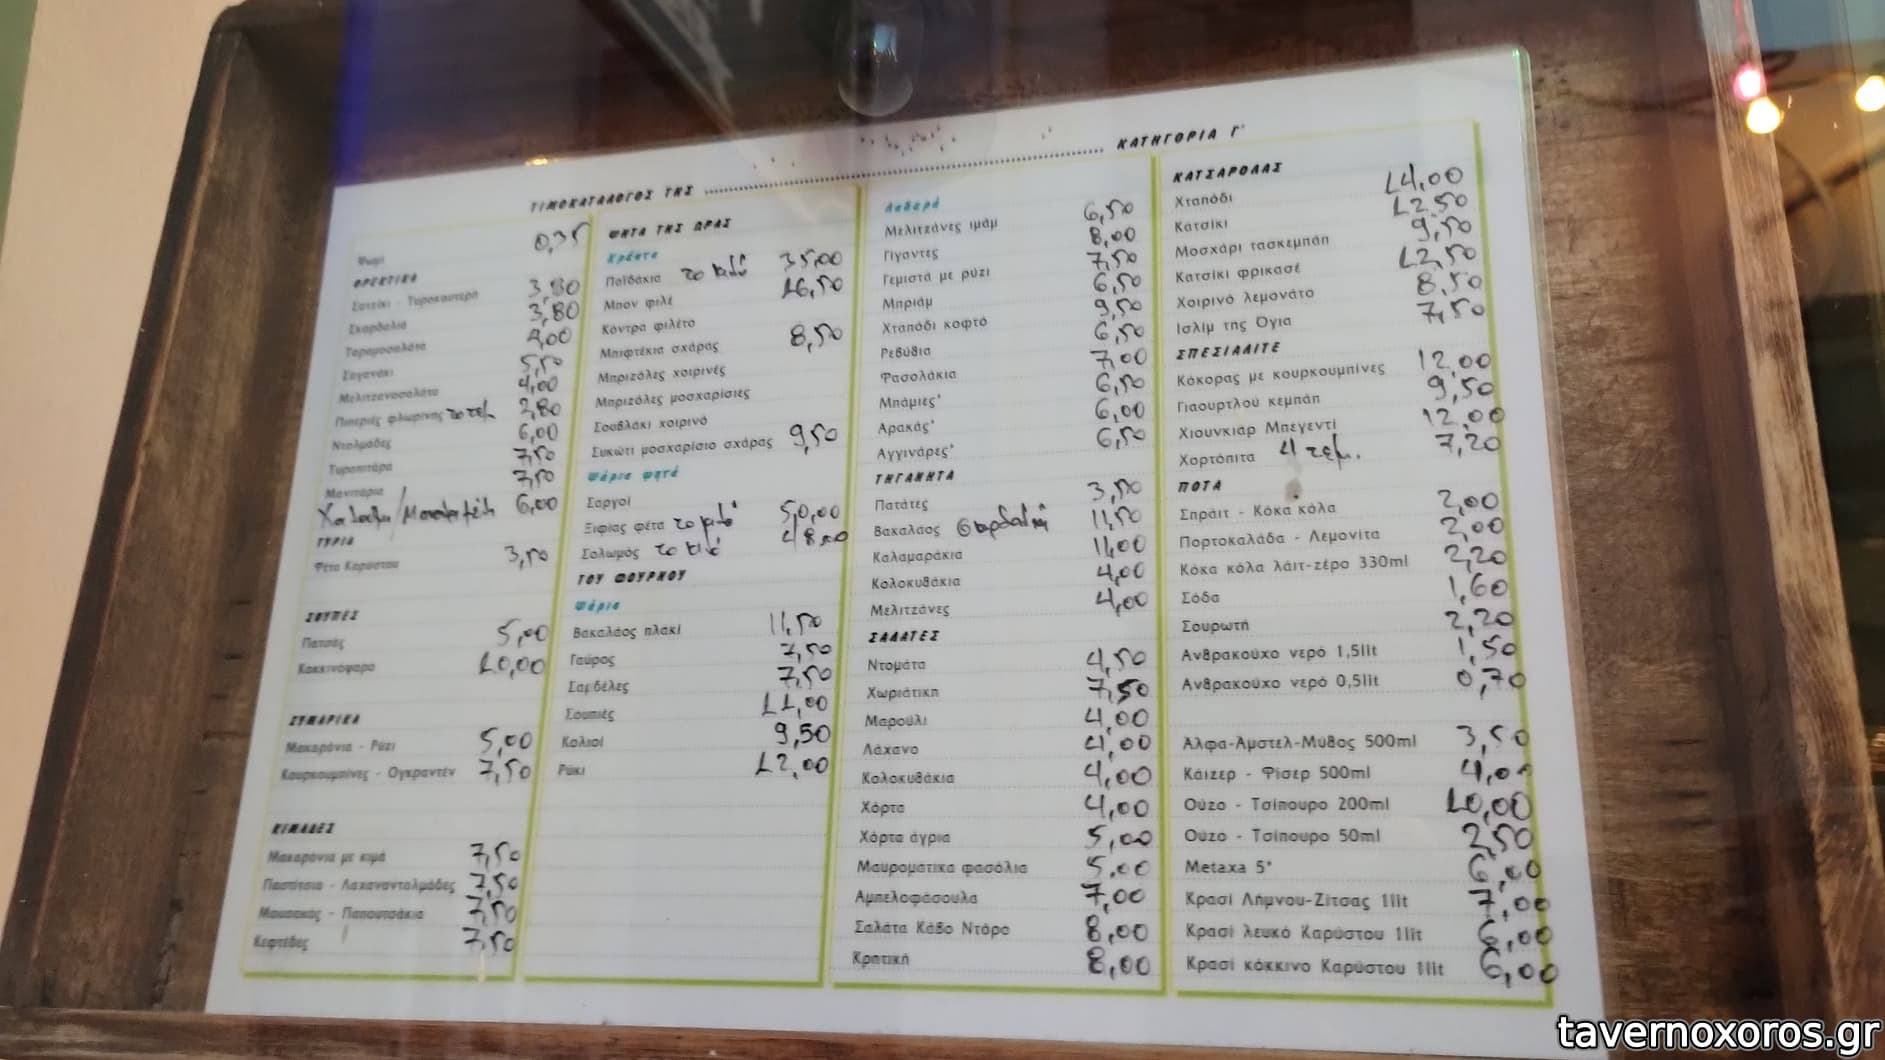 ΤΙΜΟΚΑΤΑΛΟΓΟΣ ΤΗΣ ........ ΚΑΤΗΓΟΡΙΑ Γ'
Ψωμί 0,35
ΟΡΕΚΤΙΚΑ
Σατζίκι - Τυροκαυτερή 3,80
Σκορδαλιά 3,80
Ταραμοσαλάτα 4,00
Σαγανάκι 5,50
Μελιτζανοσαλάτα 4,00
Πιπεριές φλωρίνης το τεμ 2,80
Ντολμάδες 6,00
Τυροπιτάρα 7,50
Μανιτάρια 7,50
6,00
ΤΥΡΙΑ
Φέτα Καρύστου 3,50
ΣΟΥΠΕΣ
Πατσάς 5,00
Κακκινόψαρο 10,00
ΖΥΜΑΡΙΚΑ
Μακαρόνια - Ρύζι 5,00
Κουρκουμπίνες - Ογκραντέν 7,50
ΚΙΜΑΔΕΣ
Μακαρόνια με κιμά 7,50
Παστίτσιο - Λαχανοντολμάδες 7,50
Μουσακάς - Παπουτσάκια 7,50
Κεφτέδες 7,50
ΨΗΤΑ ΤΗΣ ΩΡΑΣ
Κρέατα
Παϊδάκια το κιλό 35,00
Μπον φιλέ 16,50
Κόντρα φιλέτο
Μπιφτέκια σχάρας 8,50
Μπριζόλες χοιρινές
Μπριζόλες μοσχαρίσιες
Σουβλάκι χοιρινό
Συκώτι μοσχαρίσιο σχάρας 9,50
Ψάρια ψητά
Σαργοί
Ξιφίας φέτα το κιλό 50,00
Σολωμός το κιλό 48,00
ΤΟΥ ΦΟΥΡΝΟΥ
Ψάρια
Βακαλάος πλακί 11,50
Γαύρος 7,50
Σαρδέλες 7,50
Σουπιές 11,00
Κολιοί 9,50
Ρύκι 12,00
Λαδερά
Μελιτζάνες ιμάμ 6,50
Γίγαντες 8,00
Γεμιστά με ρύζι 7,50
Μπριάμ 6,50
Χταπόδι κοφτό 9,50
Ρεβύθια 6,50
Φασολάκια 7,00
Μπάμιες' 6,50
Αρακάς' 6,00
Αγγινάρες' 6,50
ΤΗΓΑΝΗΤΑ
Πατάτες 3,50
Βακαλάος σκορδαλιά 11,50
Καλαμαράκια 11,00
Κολοκυθάκια 4,00
Μελιτζάνες 4,00
ΣΑΛΑΤΕΣ
Ντομάτα 4,50
Χωριάτικη 7,50
Μαρούλι 4,00
Λάχανο 4,00
Κολοκυθάκια 4,00
Χόρτα 4,00
Χόρτα άγρια 5,00
Μαυροματικα φασόλια 5,00
Αμπελοφάσουλα 7,00
Σαλάτα Κάβο Ντόρο 8,00
Κρητική 8,00
ΚΑΤΣΑΡΟΛΑΣ
Χταπόδι 14,00
Κατσίκι 12,50
Μοσχάρι τασκεμπάπ 9,50
Κατσίκι φρικασέ 12,50
Χοιρινό λεμονάτο 8,50
Ισλίμ της Ογια 7,50
ΣΠΕΣΙΑΛΙΤΕ
Κόκορας με κουρκουμπίνες 12,00
Γιαουρτλού κεμπάπ 9,50
Χιουνκιάρ Μπεγεντί 12,00
Χορτόπιτα 4 τεμ. 7,20
ΠΟΤΑ
Σπράιτ - Κόκα κόλα 2,00
Πορτοκαλάδα - Λεμονίτα 2,00
Κόκα κόλα λάιτ-ζέρο 330ml 2,20
Σόδα 1,60
Σουρωτή 2,20
Ανθρακούχο νερό 1,5lit 1,50
Ανθρακούχο νερό 0,5lit 0,70
Άλφα-Άμστελ-Μύθος 500ml 3,50
Κάιζερ - Φίσερ 500ml 4,00
Ούζο - Τσίπουρο 200ml 10,00
Ούζο - Τσίπουρο 50ml 2,50
Metaxa 5* 6,00
Κρασί Λήμνου-Ζίτσας 1lit 7,00
Κρασί λευκό Καρύστου 1lit 6,00
Κρασί κόκκινο Καρύστου 1lit 6,00
tavernoxoros.gr